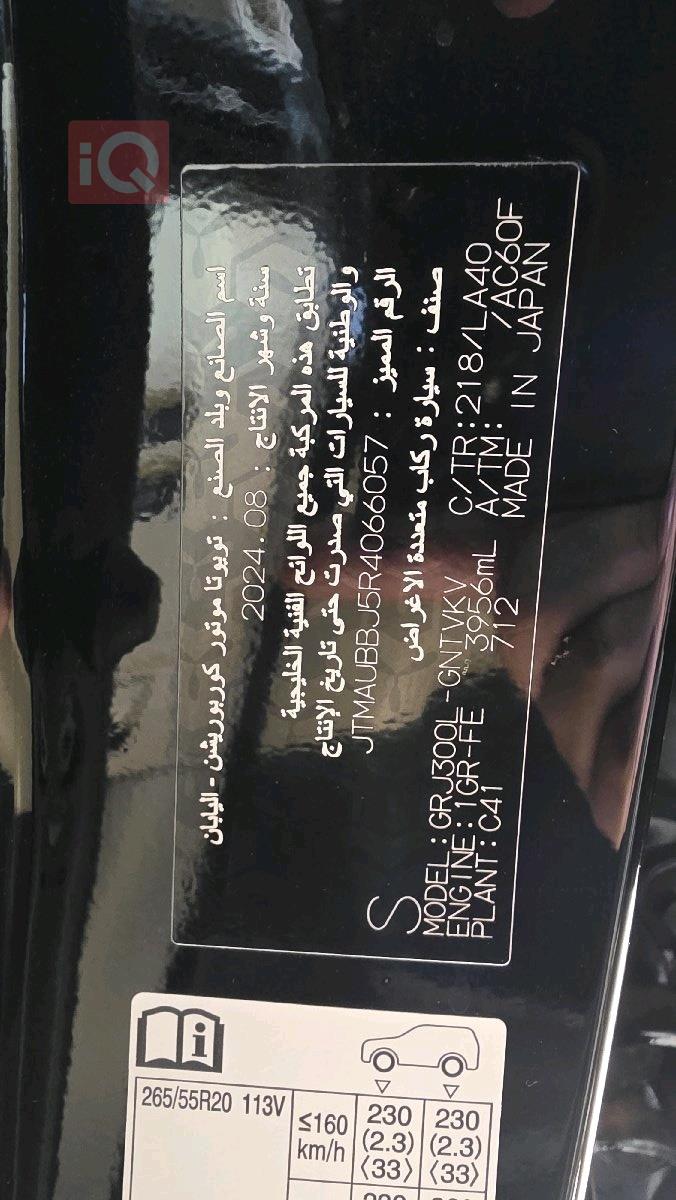 iQ
اسم الصانع وبلد الصنع : تويوتا موتور كوربوريشن - اليابان
سنة وشهر الانتاج : 2024.08
تطابق هذه المركبة جميع اللوائح الفنية الخليجية
والوطنية للسيارات التي صدرت حتى تاريخ الإنتاج
الرقم المميز : JTMAUBBJ5R4066057
صنف : سيارة ركاب متعددة الاغراض
S
MODEL:GRJ300L-GNTVKV C/TR:218/LA40
ENGINE:1GR-FE 3956mL A/TM: /AC60F
PLANT:C41 712 MADE IN JAPAN
i
265/55R20 113V
≤160 km/h
230 (2.3) ⟨33⟩
230 (2.3) ⟨33⟩